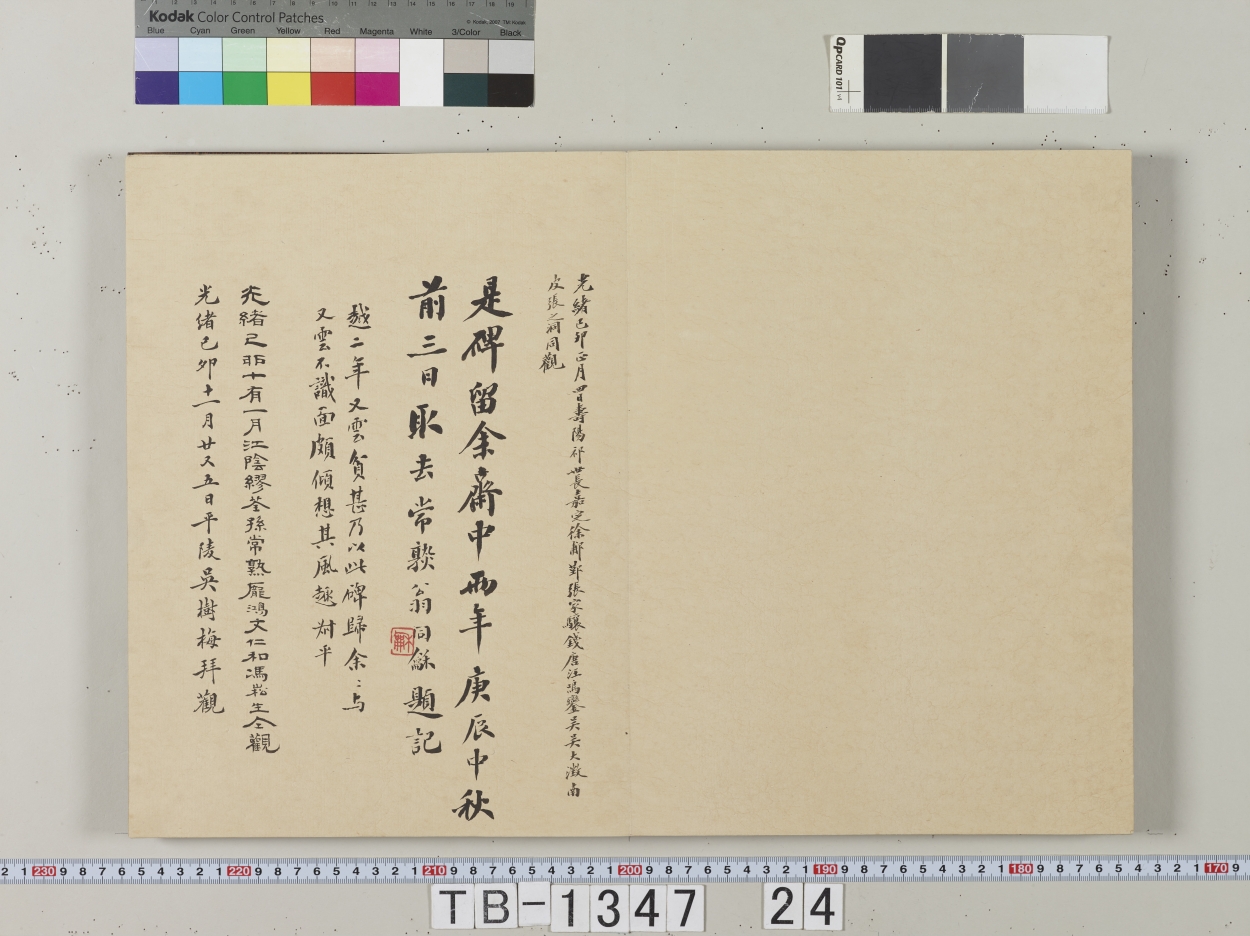 Kodak Color Control Patches
© Kodak, 2007 TM: Kodak
Blue Cyan Green Yellow Red Magenta White 3/Color Black
QpCARD 101
光緒己卯正月四日壽陽祁世長嘉定徐郙鄞張家驤錢唐汪鳴鑾吳吳大澂南
皮張之洞同觀
是碑留余齋中兩年庚辰中秋
前三日取去常熟翁同龢題記
越二年又雲貧甚乃以此碑歸余〻与
又雲不識面頗傾想其風趣
光緒己卯十有一月江陰繆荃孫常熟龐鴻文仁和馮崧生仝觀
光緒己卯十一月廿又五日平陵吳樹梅拜觀
2 1 230 9 8 7 6 5 4 3 2 1 220 9 8 7 6 5 4 3 2 1 210 9 8 7 6 5 4 3 2 1 200 9 8 7 6 5 4 3 2 1 190 9 8 7 6 5 4 3 2 1 180 9 8 7 6 5 4 3 2 1 170 9
TB-1347 24